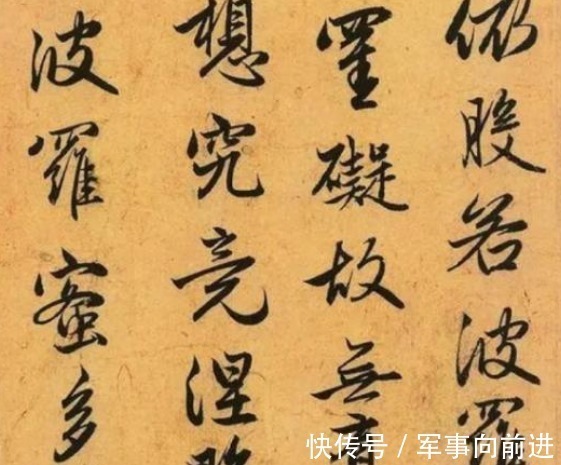 依般若波羅
罣礙故無有
想究竟涅槃
波羅蜜多
快传号 / 军事向前进